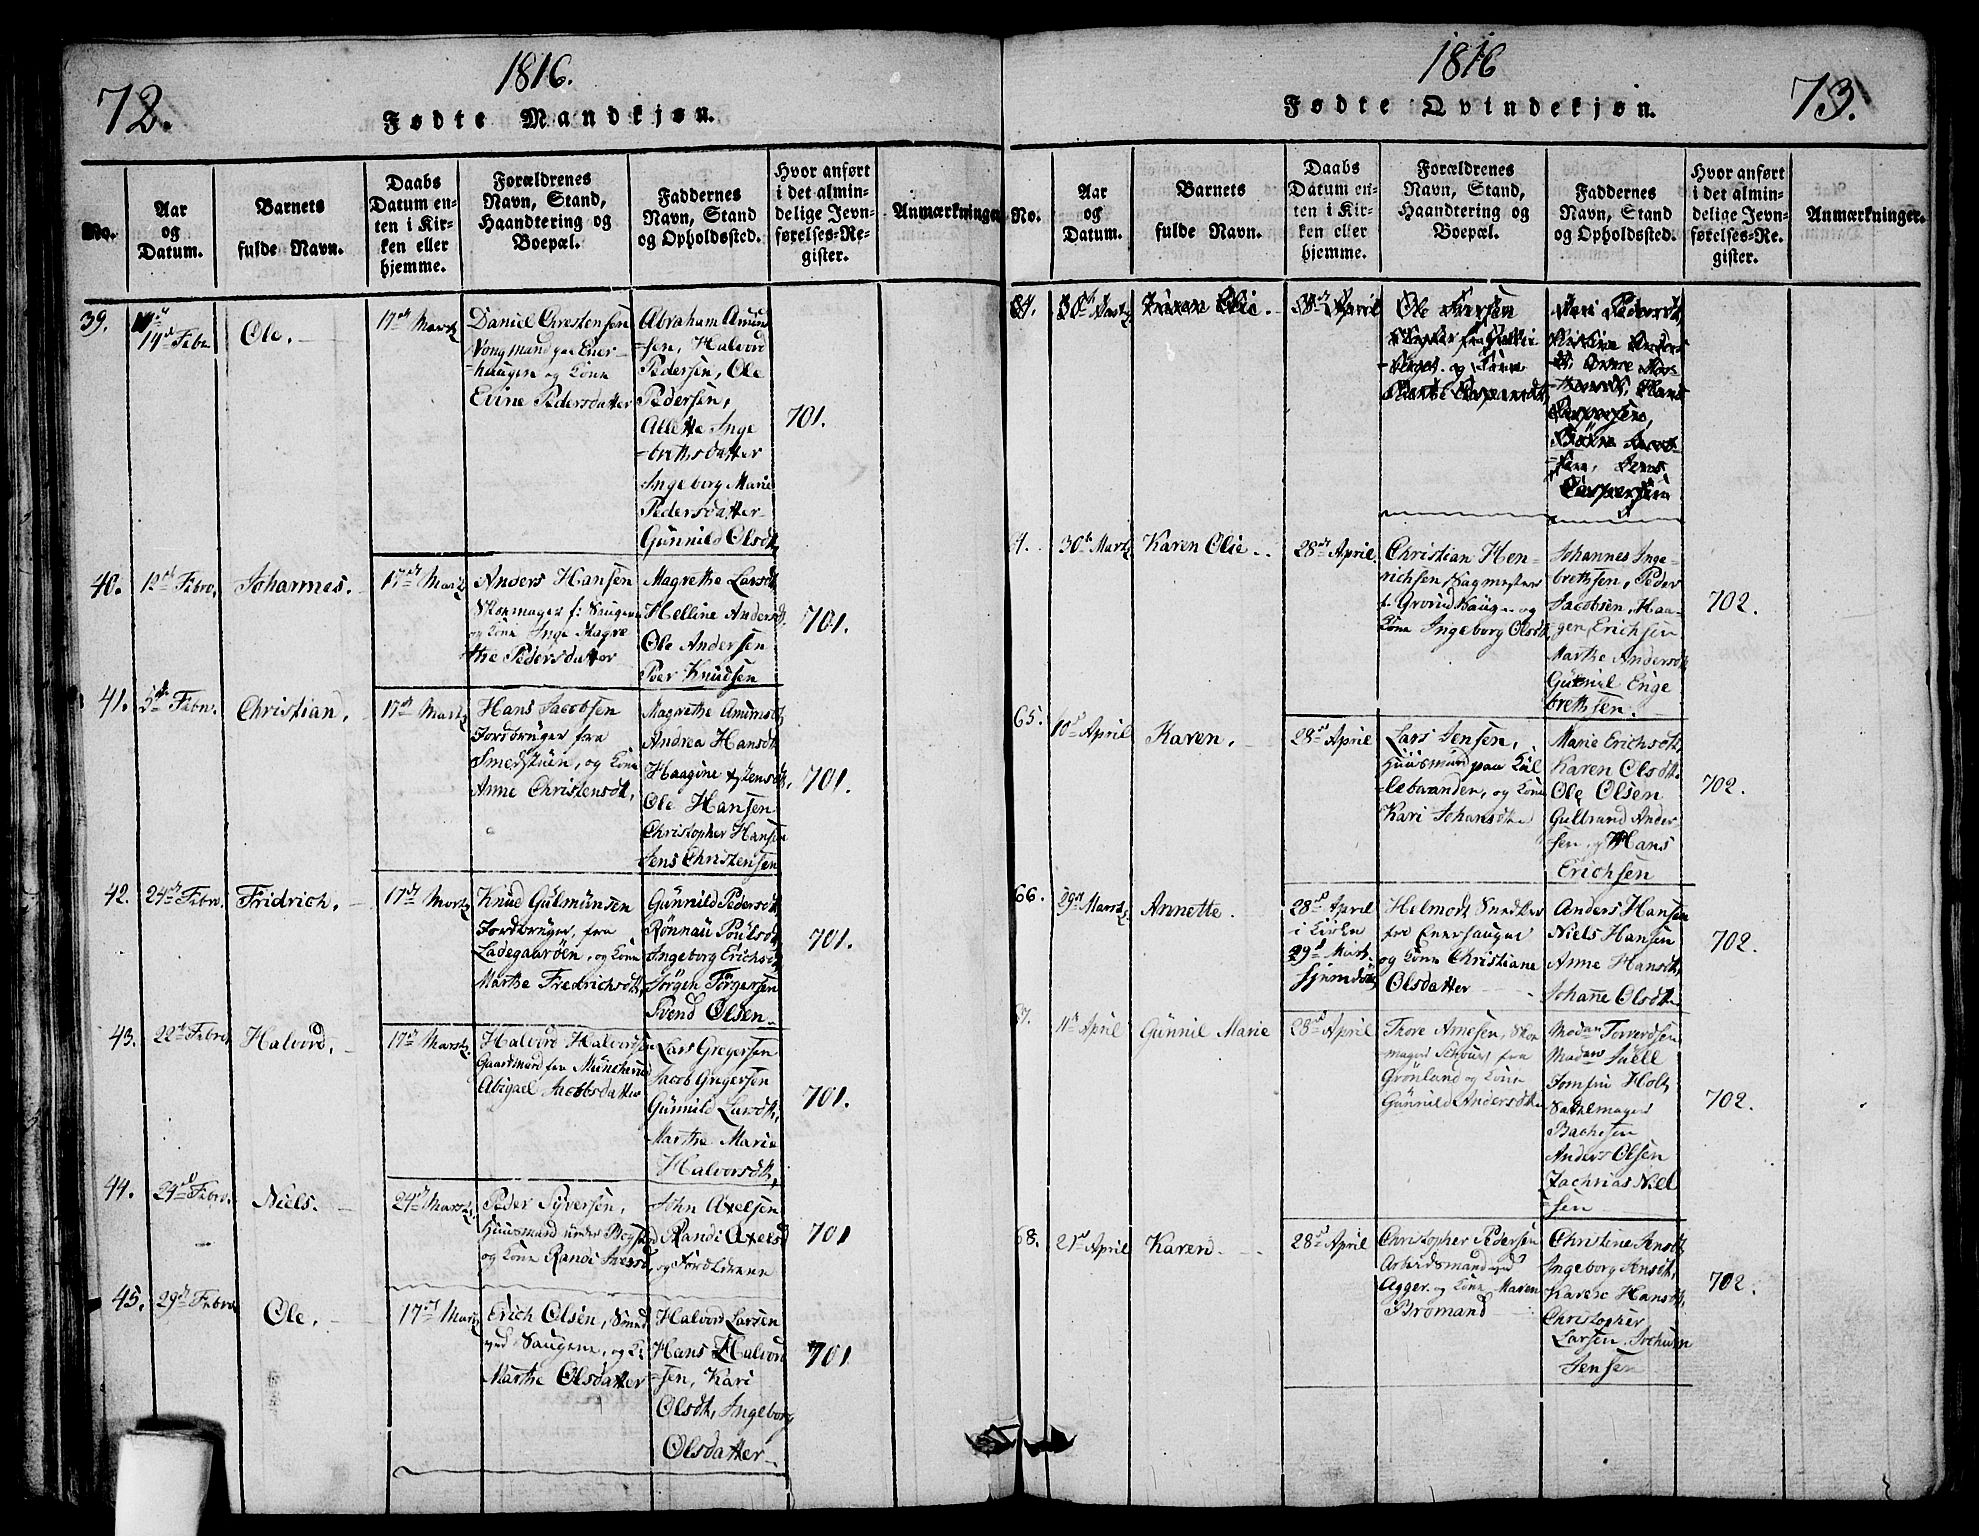 72.
1816.
Fødte Mandkjøn.
No.
Aar
og
Datum.
Barnets
fulde Navn.
Daabs
Datum en-
ten i Kir-
ken eller
hjemme.
Forældrenes
Navn, Stand,
Haandtering og
Boepæl.
Faddernes
Navn, Stand
og Opholdssted.
Hvor anført
i det almin-
delige Jevn-
førelses-Re-
gister.
Anmærkninger.
39.
14d Febr.
Ole.
17de Martz
Daniel Christensen
Vongmand paa Ener-
haugen og Kone
Evine Pedersdatter
Abraham Amun
sen, Halvord
Pedersen, Ole
Pedersen,
Allette Inge
-brethsdatter
Ingeborg Marie
Pedersdatter
Günnild Olsdt,
701.
40.
12d Febr.
Johannes.
17de Martz
Anders Hansen
Skomager f: Saugene
og Kone Inge Magre
the Pedersdatter
Magrethe Larsdt,
Helline Andersd.
Ole Andersen
Peer Knudsen
701.
41.
5de Febr.
Christian.
17de Martz
Hans Jacobsen
Jordbruger fra
Smerstüen, og Kone
Anne Christensdt,
Magrethe Amunsd,
Andrea Hansdt
Haagine
Ole Hansen
Christopher Hansen
Jens Christensen
701.
42.
24de Febr.
Fridrich.
17de Martz
Knud Gülmünsen
Jordbruger, fra
Ladegaarsöen, og Kone
Marthe Fredrichsdt,
Günnild Pedersdt,
Rönnau Poulsdt,
Ingeborg Erichsdt,
Jörgen Törgersen
Svend Olsen
701.
43.
22de Febr.
Halvord.
17de Martz.
Halvord Halvordsen
Gaardmand fra
Abigael Jacobsdatter
Lars Gregersen
Jacob Gregersen
Günnild Larsdt,
Marthe Marie
Halvorsdt,
701.
44.
24d Febr.
Niels.
24de Martz.
Peder Syversen,
Huusmand under
og Kone Randi
John Axelsen
Randi Axelsd
og Forældrene
701
45.
29de Febr.
Ole.
17de Martz
Erich Olsen,
ved Saugene, og K:
Marthe Olsdatter
Halvord Larsen
Hans Halvord
sen, Kari
Olsdt, Ingeborg
Olsdatter
701
1816
Fødte Qvindekjøn.
73.
No.
Aar
og
Datum.
Barnets
fulde Navn.
Daabs
Datum en-
ten i Kir-
ken eller
hjemme.
Forældrenes
Navn, Stand,
Haandtering og
Boepæl.
Faddernes
Navn, Stand
og Opholdssted.
Hvor anført
i det almin-
delige Jevn-
førelses-Re-
gister.
Anmærkninger.
Caspersen
4.
30te Martz
Karen Olie
28de April
Christian Hen-
richsen, Sagmester
f. Grorud Haug og
Kone Ingeborg Olsdt,
Johannes Inge-
brethsen, Peder
Jacobsen, Haa-
gen Erichsen
Marthe Andersdt,
Günnil Enge
brethsen.
702.
65.
10d April
Karen.
28d April
Lars Jensen,
Huusmand paa
og Kone
Kari Johansdt
Marie Erichsdt,
Karen Olsdt
Ole Olsen
Gulbrand Ander-
sen, og Hans
Erichsen
702.
66.
29de Martz.
Annette.
28d April
i Kirken
29d Mart.
hjemdöbt
Helmods Snedker
fra Enerhaugen
og Kone Christiane
Olsdatter
Anders Hansen
Niels Hansen
Anne Hansdt,
Johanne Olsdt
702.
67.
11te April
Günnil Marie
28d April
Thore Arnesen, Sko
mager fra
Grönland og Kone
Günnild Andersdt.
Madam Torvordsen
Madam Juell
Jomfru Holt
Sadelmager
Bachesen
Anders Olsen
Zachrias Niel
sen
702.
68.
21d April
Karen.
28d April
Christopher Pedersen
Arbeidsmand ved
Agger. og Kone Maren
Bromand
Christine Jensdt,
Ingeborg Jensdt,
Karene Hansdt,
Christopher
Larsen, Jochum
Jensen
702.